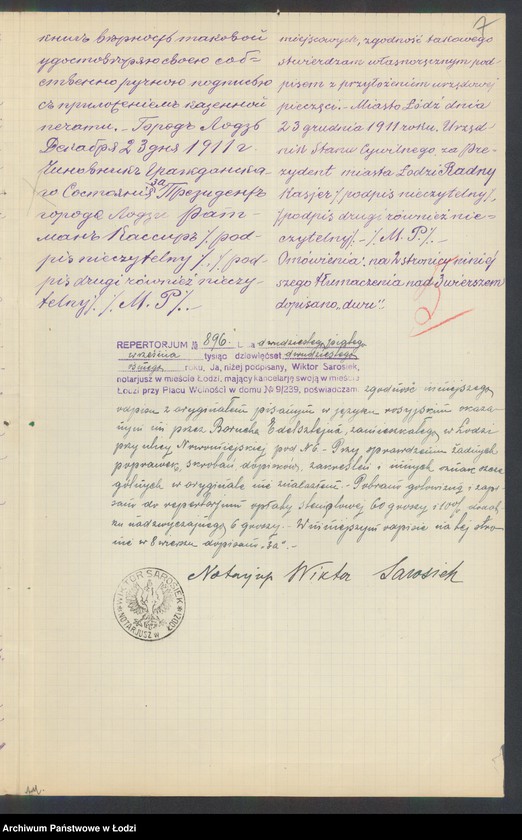 7
книгъ вѣрность таковой
удостовѣряю своею соб-
ственно ручною подписью
съ приложеніемъ казенной
печати. - Городъ Лодзь
Декабря 23 дня 1911 г.
Чиновникъ Гражданска-
го Состоянія за Президентъ
города Лодзи Рат-
манъ Кассиръ /. /pod-
pis nieczytelny /, /pod
pis drugi również nieczy-
telny/. /. M. P./. -
miejscowych, zgodność takowego
stwierdzam własnoręcznym pod
pisem z przyłożeniem urzędowej
pieczęci. - Miasto Łódź dnia
23 grudnia 1911 roku, Urzęd-
nik Stanu Cywilnego za Pre-
zydent miasta Łodzi Radny
Kasjer /podpis nieczytelny/,
/podpis drugi również nie-
czytelny/. - /. M. P./. -
Omówienia: na 2 stronicy niniej
szego tłumaczenia nad 3 wierszem
dopisano „dwu".
REPERTORJUM № 896. Dnia dwudziestego piątego
września tysiąc dziewięćset dwudziestego
roku, Ja, niżej podpisany, Wiktor Sarosiek,
notarjusz w mieście Łodzi, mający kancelarję swoją w mieście
Łodzi przy Placu Wolności w domu № 9/239, poświadczam zgodność niniejszego
odpisu z oryginałem pisanym w języku rosyjskim okaza-
nym mi przez Borucha Edelsztejna, zamieszkałego w Łodzi
przy ulicy Nowomiejskiej pod № 6. - Przy sprawdzeniu żadnych
poprawek, skrobań dopisków, zakreśleń i innych oznak szcze
gólnych w oryginale nie znalazłem. - Pobrano gotowizną i zapi-
sano do repertorjum opłaty stemplowej 60 groszy i 10% dodat-
ku nadzwyczajnego 6 groszy. - W niniejszym odpisie na tej stro-
nie w 8 wierszu dopisano „За". -
Notarjusz Wiktor Sarosiek
WIKTOR SAROSIEK
NOTARJUSZ w ŁODZI
Archiwum Państwowe w Łodzi